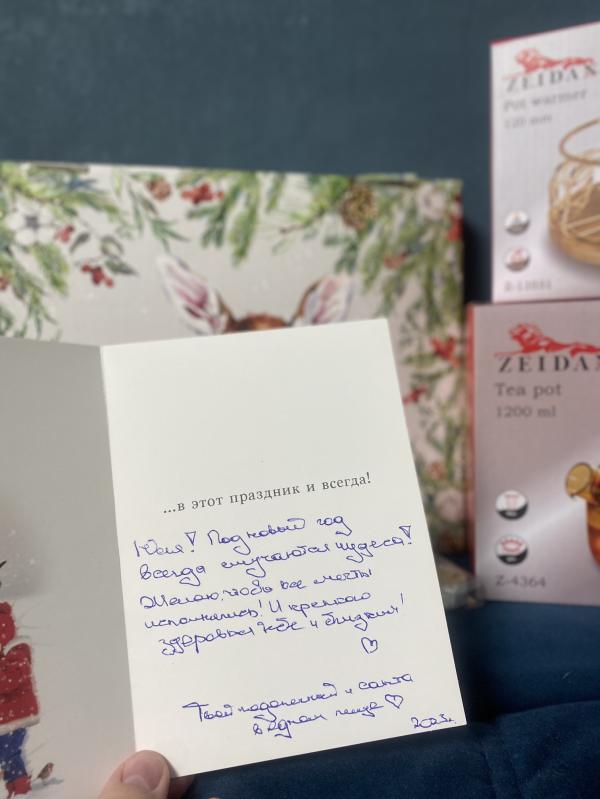 ZEIDAN
Pot warmer
120 mm
Z-11031
ZEIDAN
Tea pot
1200 ml
Z-4364
...в этот праздник и всегда!
Юля! Под новый год
всегда случаются чудеса!
Желаю, чтобы все мечты
исполнились! И крепкого
здоровья тебе и близким!
Твой подопечный и санта
в одном лице
2023г.